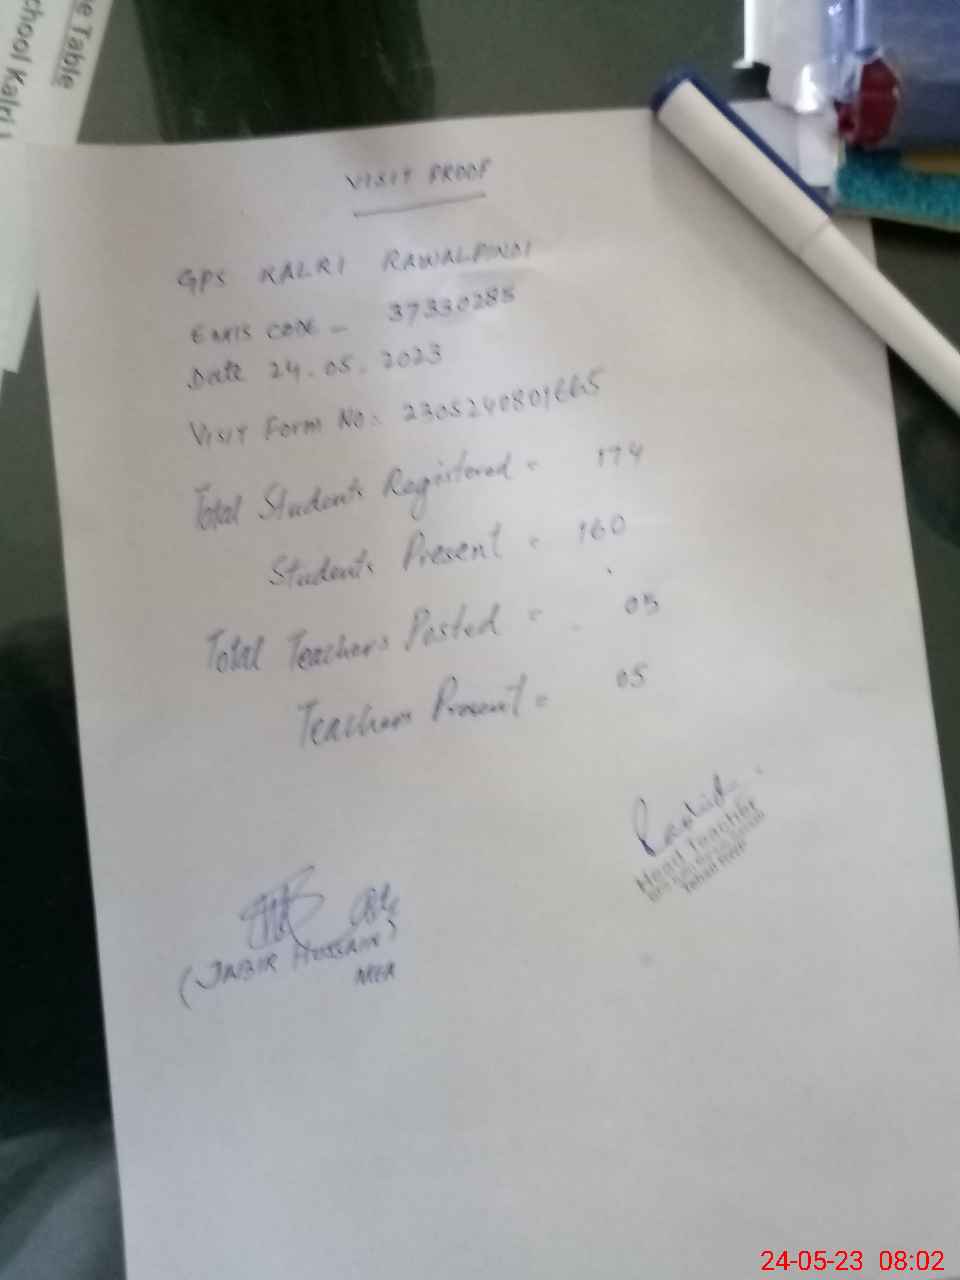 e Table
chool Kalri
VISIT PROOF
GPS KALRI RAWALPINDI
EMIS CODE - 37330285
Date 24.05.2023
VISIT Form No: 2305240801665
Total Students Registered = 174
Students Present = 160
Total Teachers Posted = 05
Teachers Present = 05
Head Teacher
(JABIR HUSSAIN)
MEA
24-05-23 08:02